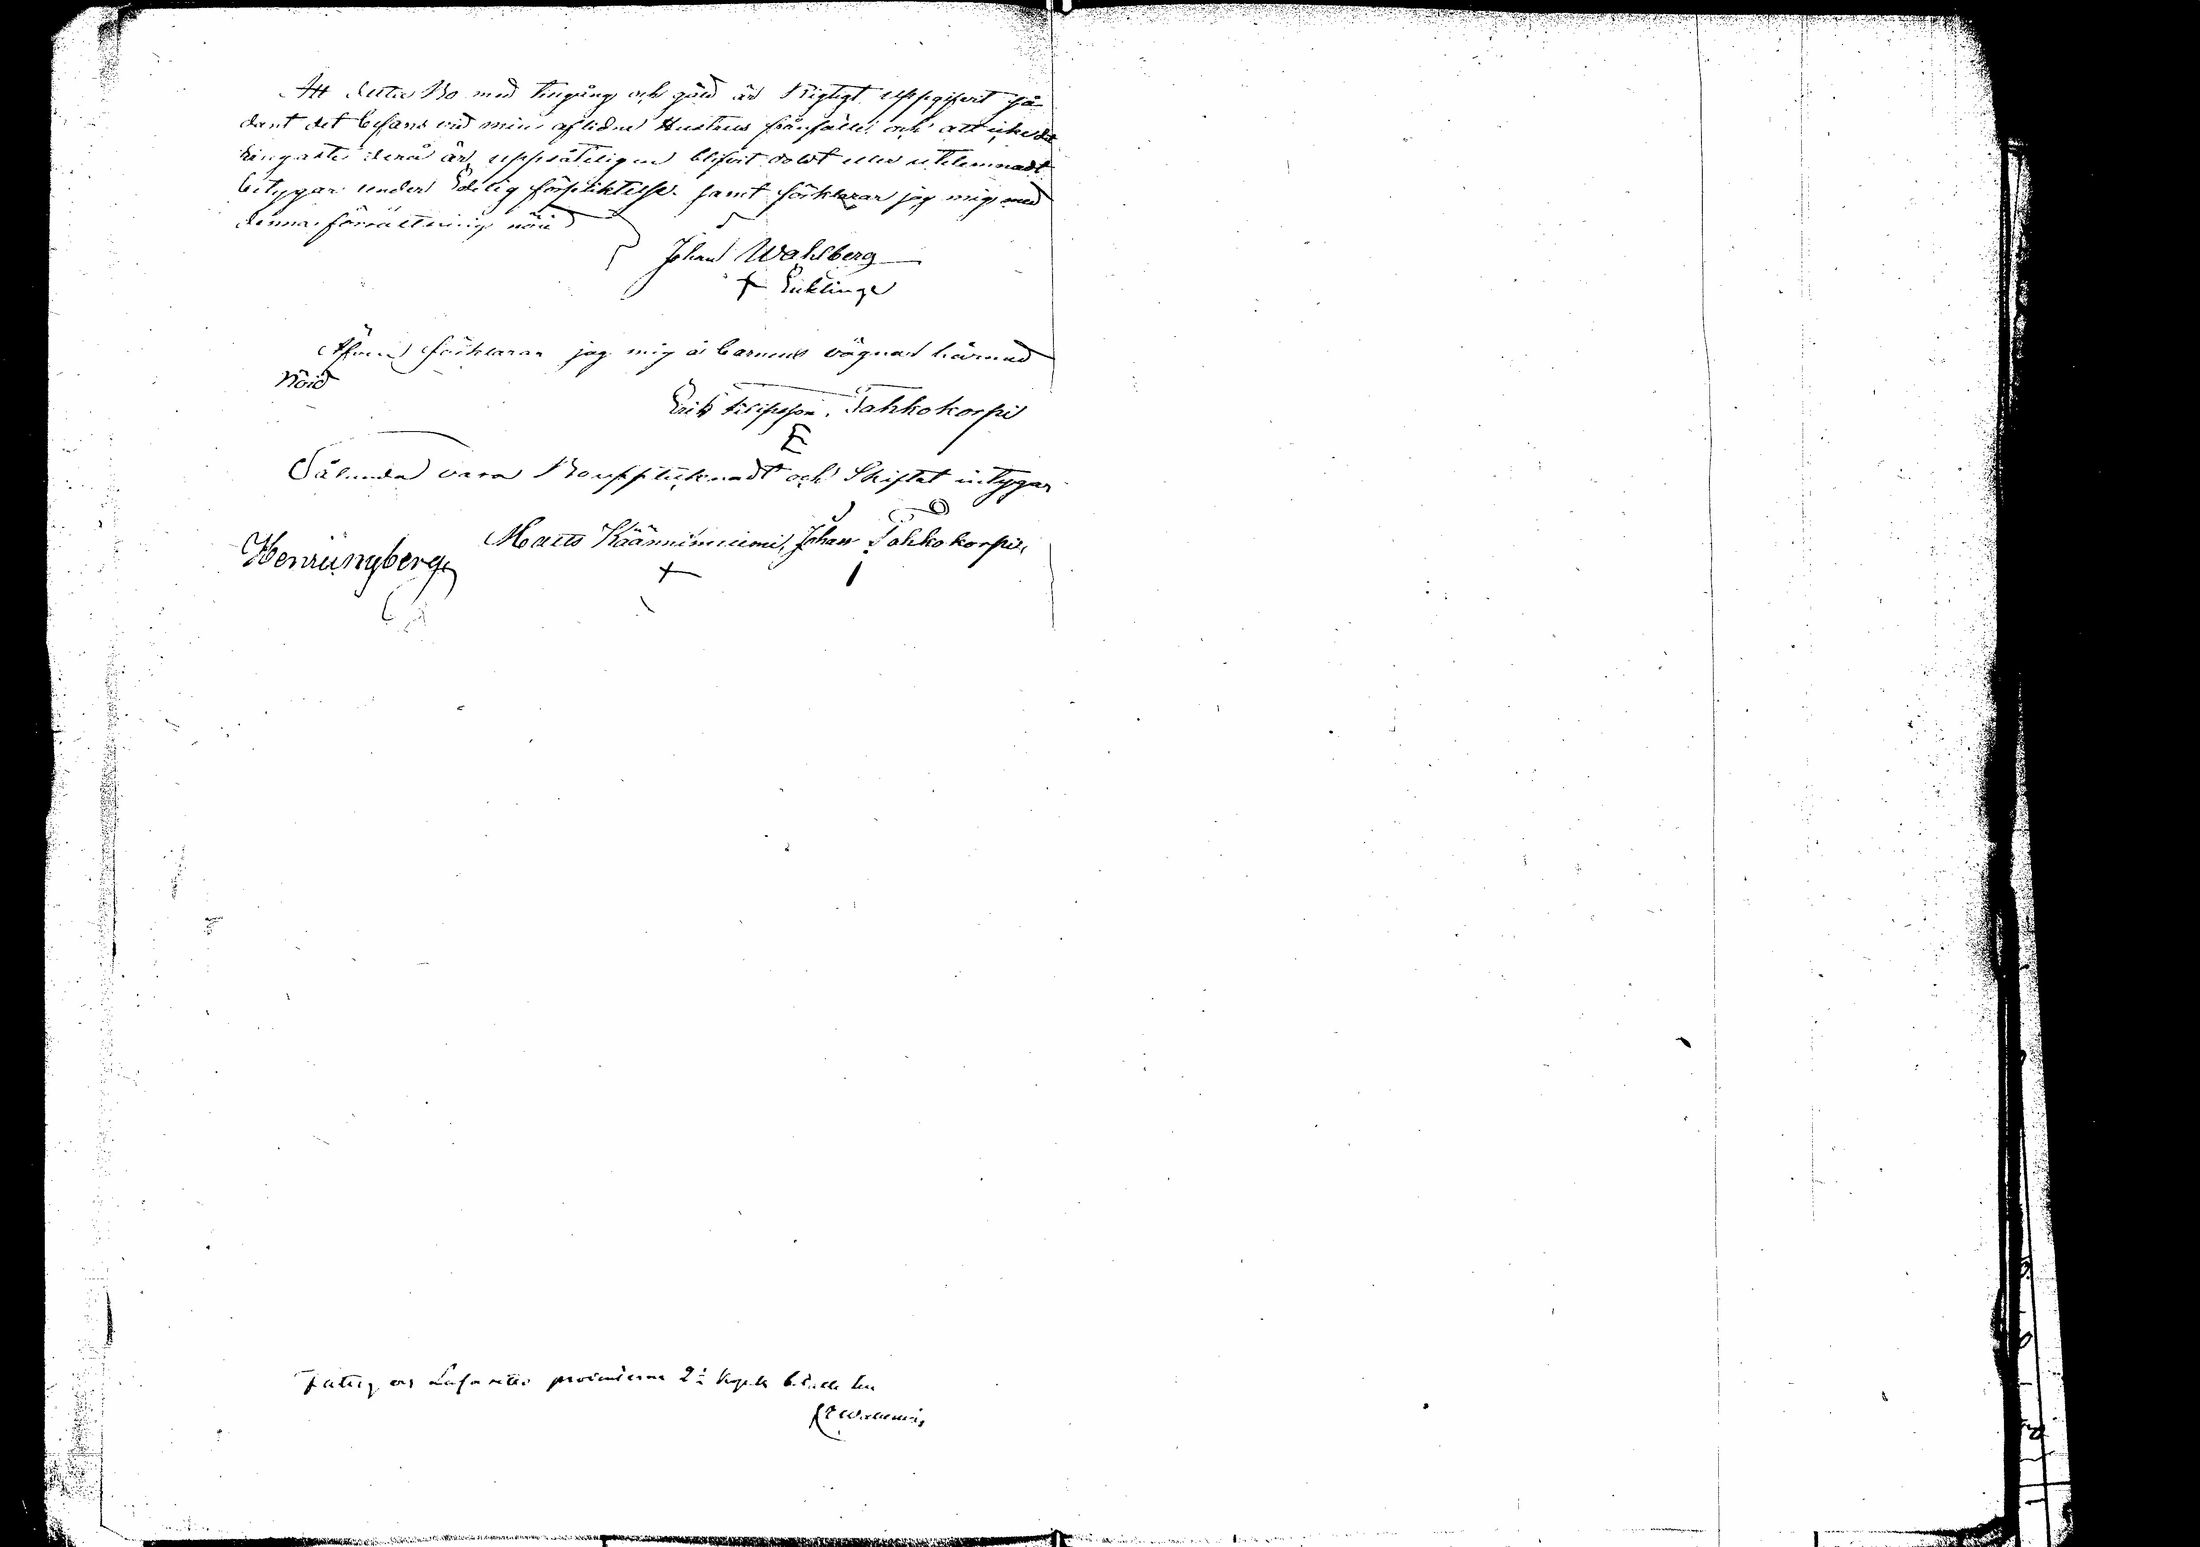 Att detta Bo med tingång och gäld är Rigtigt uppgifvit så
dant det befans vid min aflidne Hustrus frånfälle och att icke det
ringaste deraf är uppsåteligen blifvit doldt eller utelemnadt
betygar under Edelig förpliktelse samt förklarar jag mig med
denna förrättning nöid
Johan Wahlberg
+ Eiklinge
Äfven förklarar jag mig å barnens vägnar härmed
Nöid
Erik Filipsson Tahkokorpi
E
Sålunda vara Boupptecknadt och Skiftat intygar
Matts Käänniniemi, Johan Tahkokorpi
Henri Nyberg
+
Fattig och Lasaretts procenterne 2